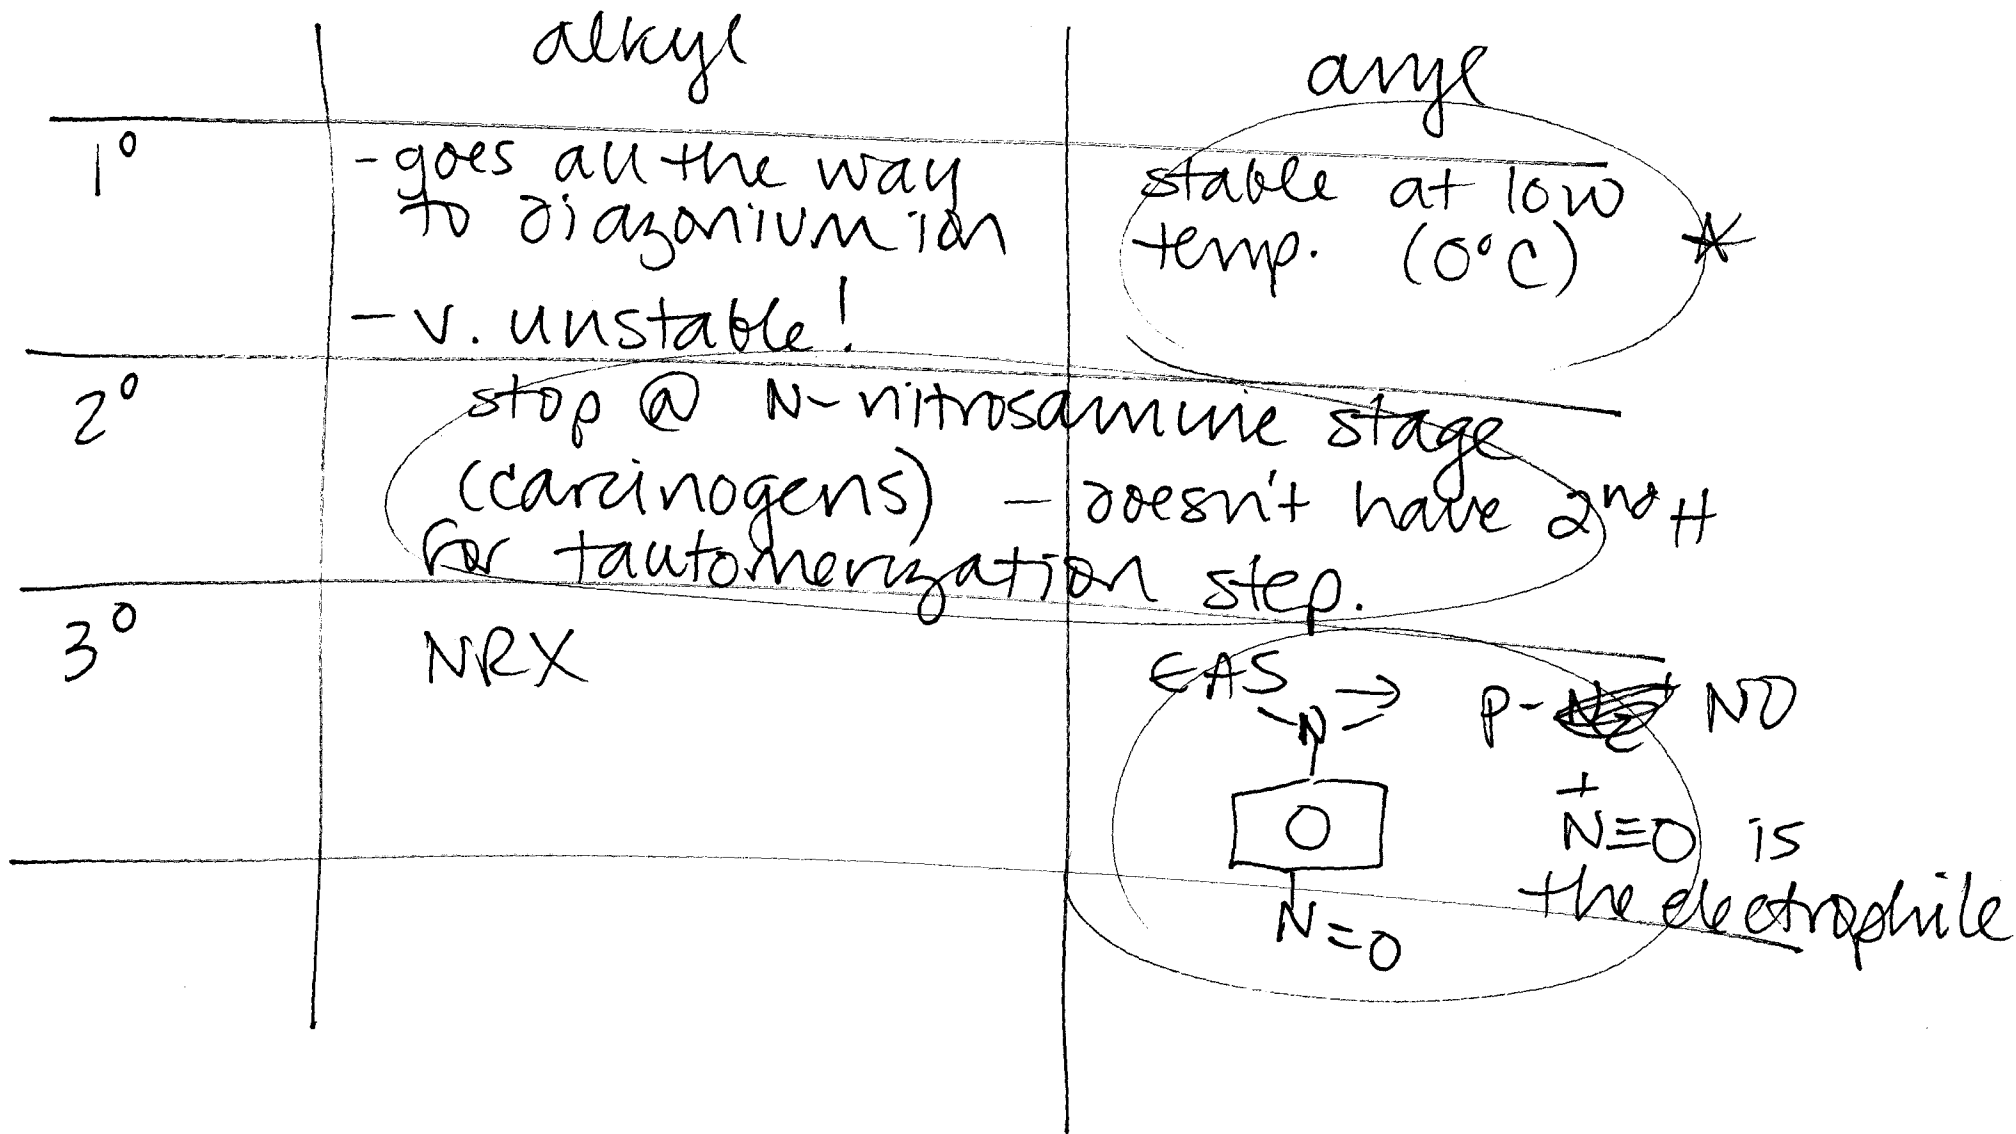 alkyl
aryl
1°
- goes all the way
to diazonium ion
- v. unstable!
stable at low
temp. (0°C)
*
2°
stop @ N-nitrosamine stage
(carcinogens) - doesn't have 2nd H
for tautomerization step.
3°
NRX
EAS → p- NO
N
N=O
+
N≡O is
the electrophile